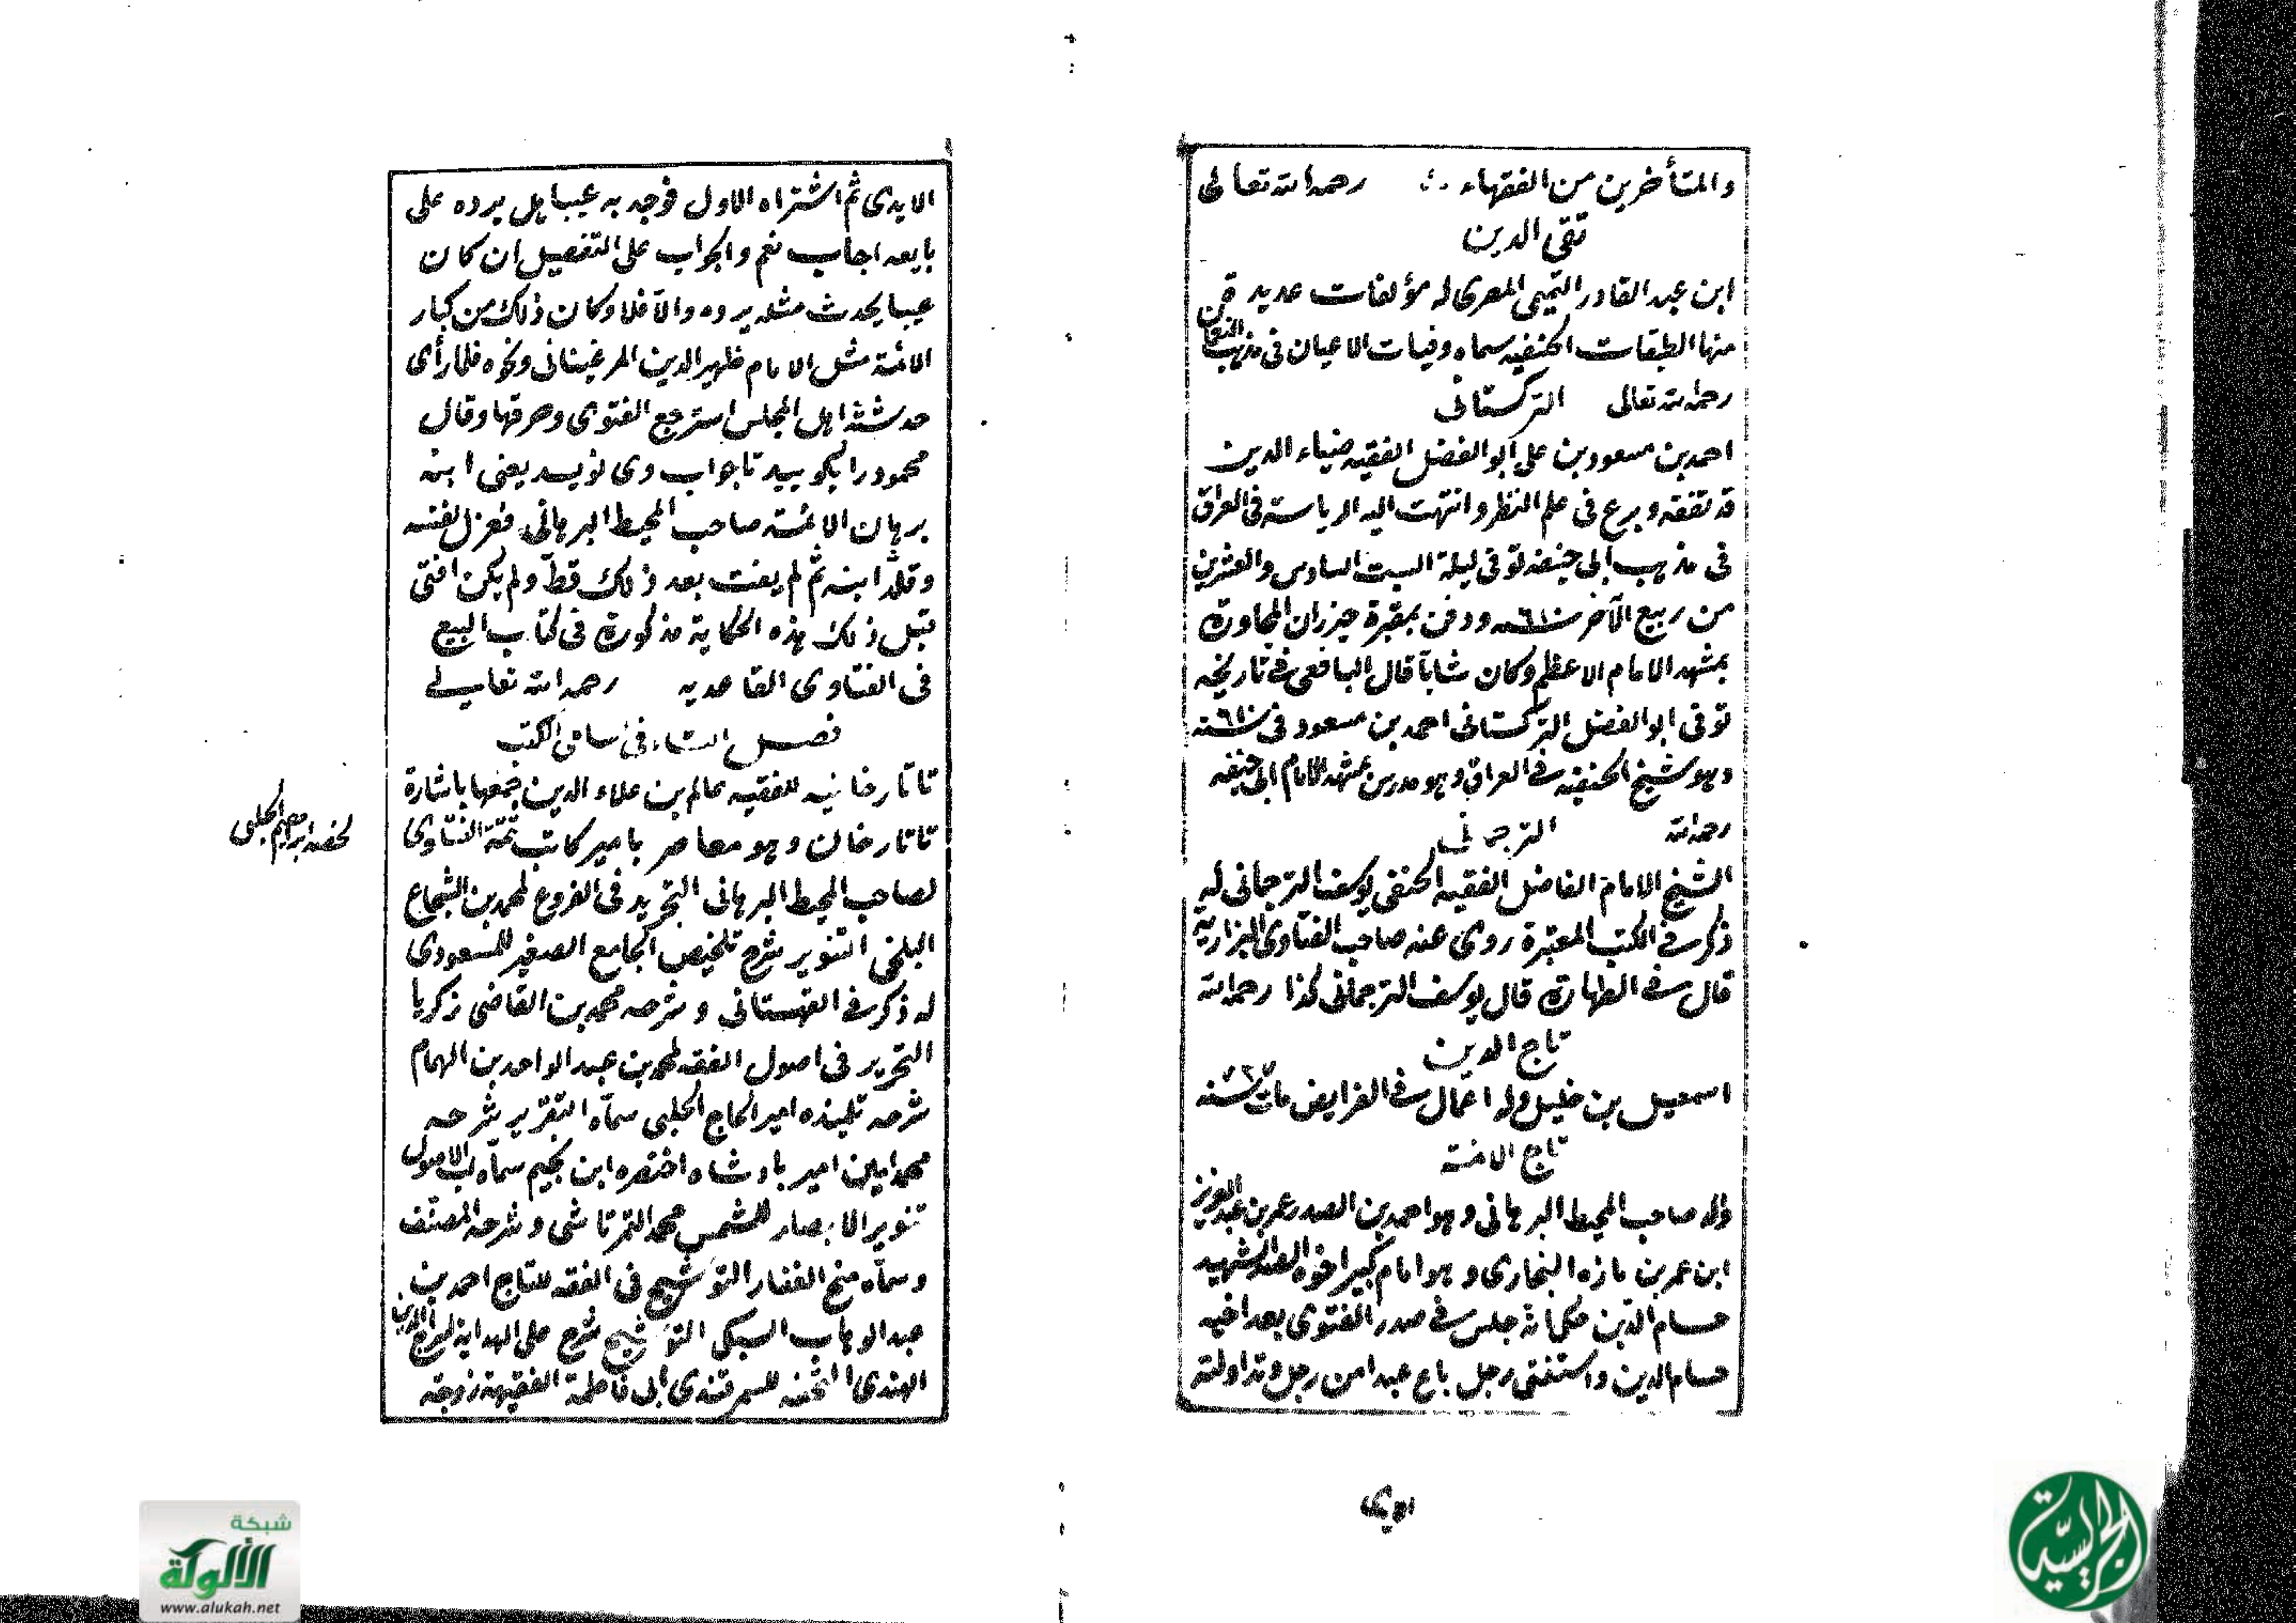 والمتأخرين من الفقهاء رحمه الله تعالى
تقى الدين
ابن عبد القادر التميمى المصرى له مؤلفات عديدة فمن
منها الطبقات الحنفيه سماه وفيات الاعيان فى مذهب النعمان
رحمه الله تعالى التركستانى
احمد بن مسعود بن على ابو الفضل الفقيه ضياء الدين
قد تفقه وبرع فى علم النظر وانتهت اليه الرياسة فى العراق
فى مذهب ابى حنيفه توفى ليلة السبت السادس والعشرين
من ربيع الآخر سنة ٦١٠ ودفن بمقبرة خيزران المجاورة
بمشهد الامام الاعظم وكان شابا قال اليافعى فى تاريخه
توفى ابو الفضل التركستانى احمد بن مسعود فى سنة ٦١٠
وهو شيخ الحنفيه فى العراق وهو مدرس بمشهد الامام ابى حنيفه
رحمه الله الترجمانى
الشيخ الامام الفاضل الفقيه الحنفى يوسف الترجمانى له
ذكر فى الكتب المعتبرة روى عنه صاحب الفتاوى البزازية
قال فى الطهارة قال يوسف الترجمانى كذا رحمه الله
تاج الدين
اسمعيل بن خليل وله اعمال فى الفرايض مات سنة
تاج الائمة
والد صاحب المحيط البرهانى وهو احمد بن الصدر عمر بن عبد العزيز
ابن عمر بن مازه البخارى وهو امام كبير اخوه الصدر الشهيد
حسام الدين حكى انه جلس فى صدر الفتوى بعد اخيه
حسام الدين واستفتى رجل باع عبدا من رجل وتداولته
الايدى
الايدى ثم اشتراه الاول فوجد به عيبا هل يرده على
بايعه اجاب نعم والجواب على التفصيل ان كان
عيبا يحدث مثله يرده والا فلا وكان ذلك من كبار
الائمة مثل الامام ظهير الدين المرغينانى ونحوه فلما رأى
حدسته اهل المجلس استرجع الفتوى وحرقها وقال
محمود را بگوييد تا جواب وى نويسد يعنى ابنه
برهان الائمة صاحب المحيط البرهانى فعزل نفسه
وقلد ابنه ثم لم يفت بعد ذلك قط ولم يكن افتى
قبل ذلك هذه الحكاية مذكورة فى كتاب البيع
فى الفتاوى القاعديه رحمه الله تعالى
فصل التاء فى سان الكتب
تاتارخانيه للفقيه عالم بن علاء الدين جمعها باشارة
تاتارخان وهو معاصر بامير كاتب تتمة الفتاوى
لخصه ابراهيم الحلبى
لصاحب المحيط البرهانى التجريد فى الفروع لمحمد بن الشجاع
البلخى التنوير شرح تلخيص الجامع الصغير للمسعودى
له ذكر فى القهستانى وشرحه محمد بن القاضى زكريا
التحرير فى اصول الفقه لمحمد بن عبد الواحد بن الهمام
شرحه تلميذه امير الحاج الحلبى سماه التقرير شرحه
محمد امين امير بادشاه اختصره ابن نجيم سماه لب الاصول
تنوير الابصار للشمس محمد التمرتاشى وشرحه المصنف
وسماه منح الغفار التوشيح فى الفقه للتاج احمد بن
عبد الوهاب السبكى التوشيح شرح على الهداية لسراج الدين
الهندى التحفه للسمرقندى ابى فاطمة الفقيهة زوجة
شبكة
الألوكة
www.alukah.net